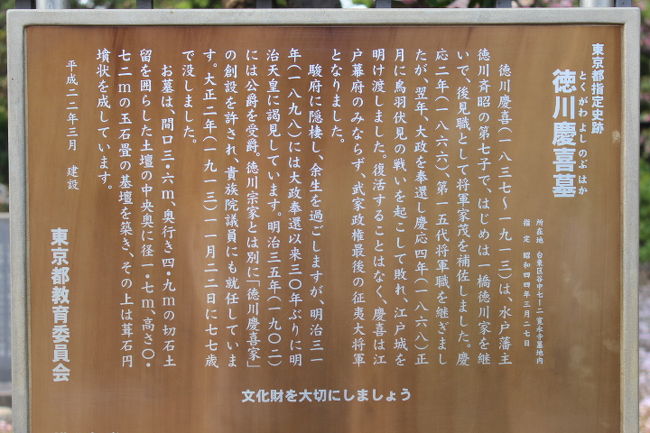 東京都指定史跡
とくがわよしのぶはか
徳川慶喜墓
所在地 台東区谷中七ー二 寛永寺墓地内
指定 昭和四四年三月二七日
徳川慶喜(一八三七〜一九一三)は、水戸藩主
徳川斉昭の第七子で、はじめは一橋徳川家を継
いで、後見職として将軍家茂を補佐しました。慶
応二年(一八六六)、第一五代将軍職を継ぎまし
たが、翌年、大政を奉還し慶応四年(一八六八)正
月に鳥羽伏見の戦いを起こして敗れ、江戸城を
明け渡しました。復活することはなく、慶喜は江
戸幕府のみならず、武家政権最後の征夷大将軍
となりました。
駿府に隠棲し、余生を過ごしますが、明治三一
年(一八九八)には大政奉還以来三〇年ぶりに明
治天皇に謁見しています。明治三五年(一九〇二)
には公爵を受爵。徳川宗家とは別に「徳川慶喜家」
の創設を許され、貴族院議員にも就任していま
す。大正二年(一九一三)一一月二二日に七七歳
で没しました。
お墓は、間口三・六m、奥行き四・九mの切石土
留を囲らした土壇の中央奥に径一・七m、高さ〇・
七二mの玉石畳の基壇を築き、その上は葺石円
墳状を成しています。
平成二二年三月 建設
東京都教育委員会
文化財を大切にしましょう